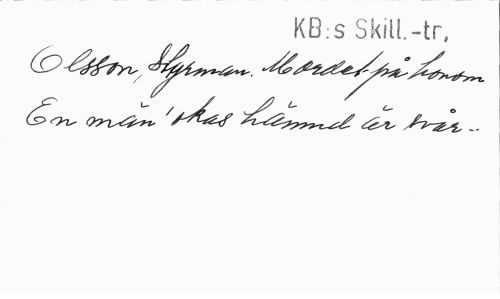 KB:s Skill.-tr,
Olsson, Styrman. Mordet på honom
En män'skas hämnd är svår..